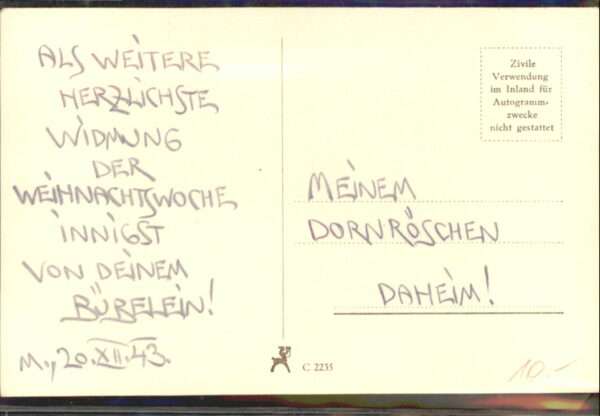 ALS WEITERE
HERZLICHSTE
WIDMUNG
DER
WEIHNACHTSWOCHE
INNIGST
VON DEINEM
BÜBELEIN!
M., 20.XII.43.
Zivile
Verwendung
im Inland für
Autogramm-
zwecke
nicht gestattet
MEINEM
DORNRÖSCHEN
DAHEIM!
C 2235
10.-